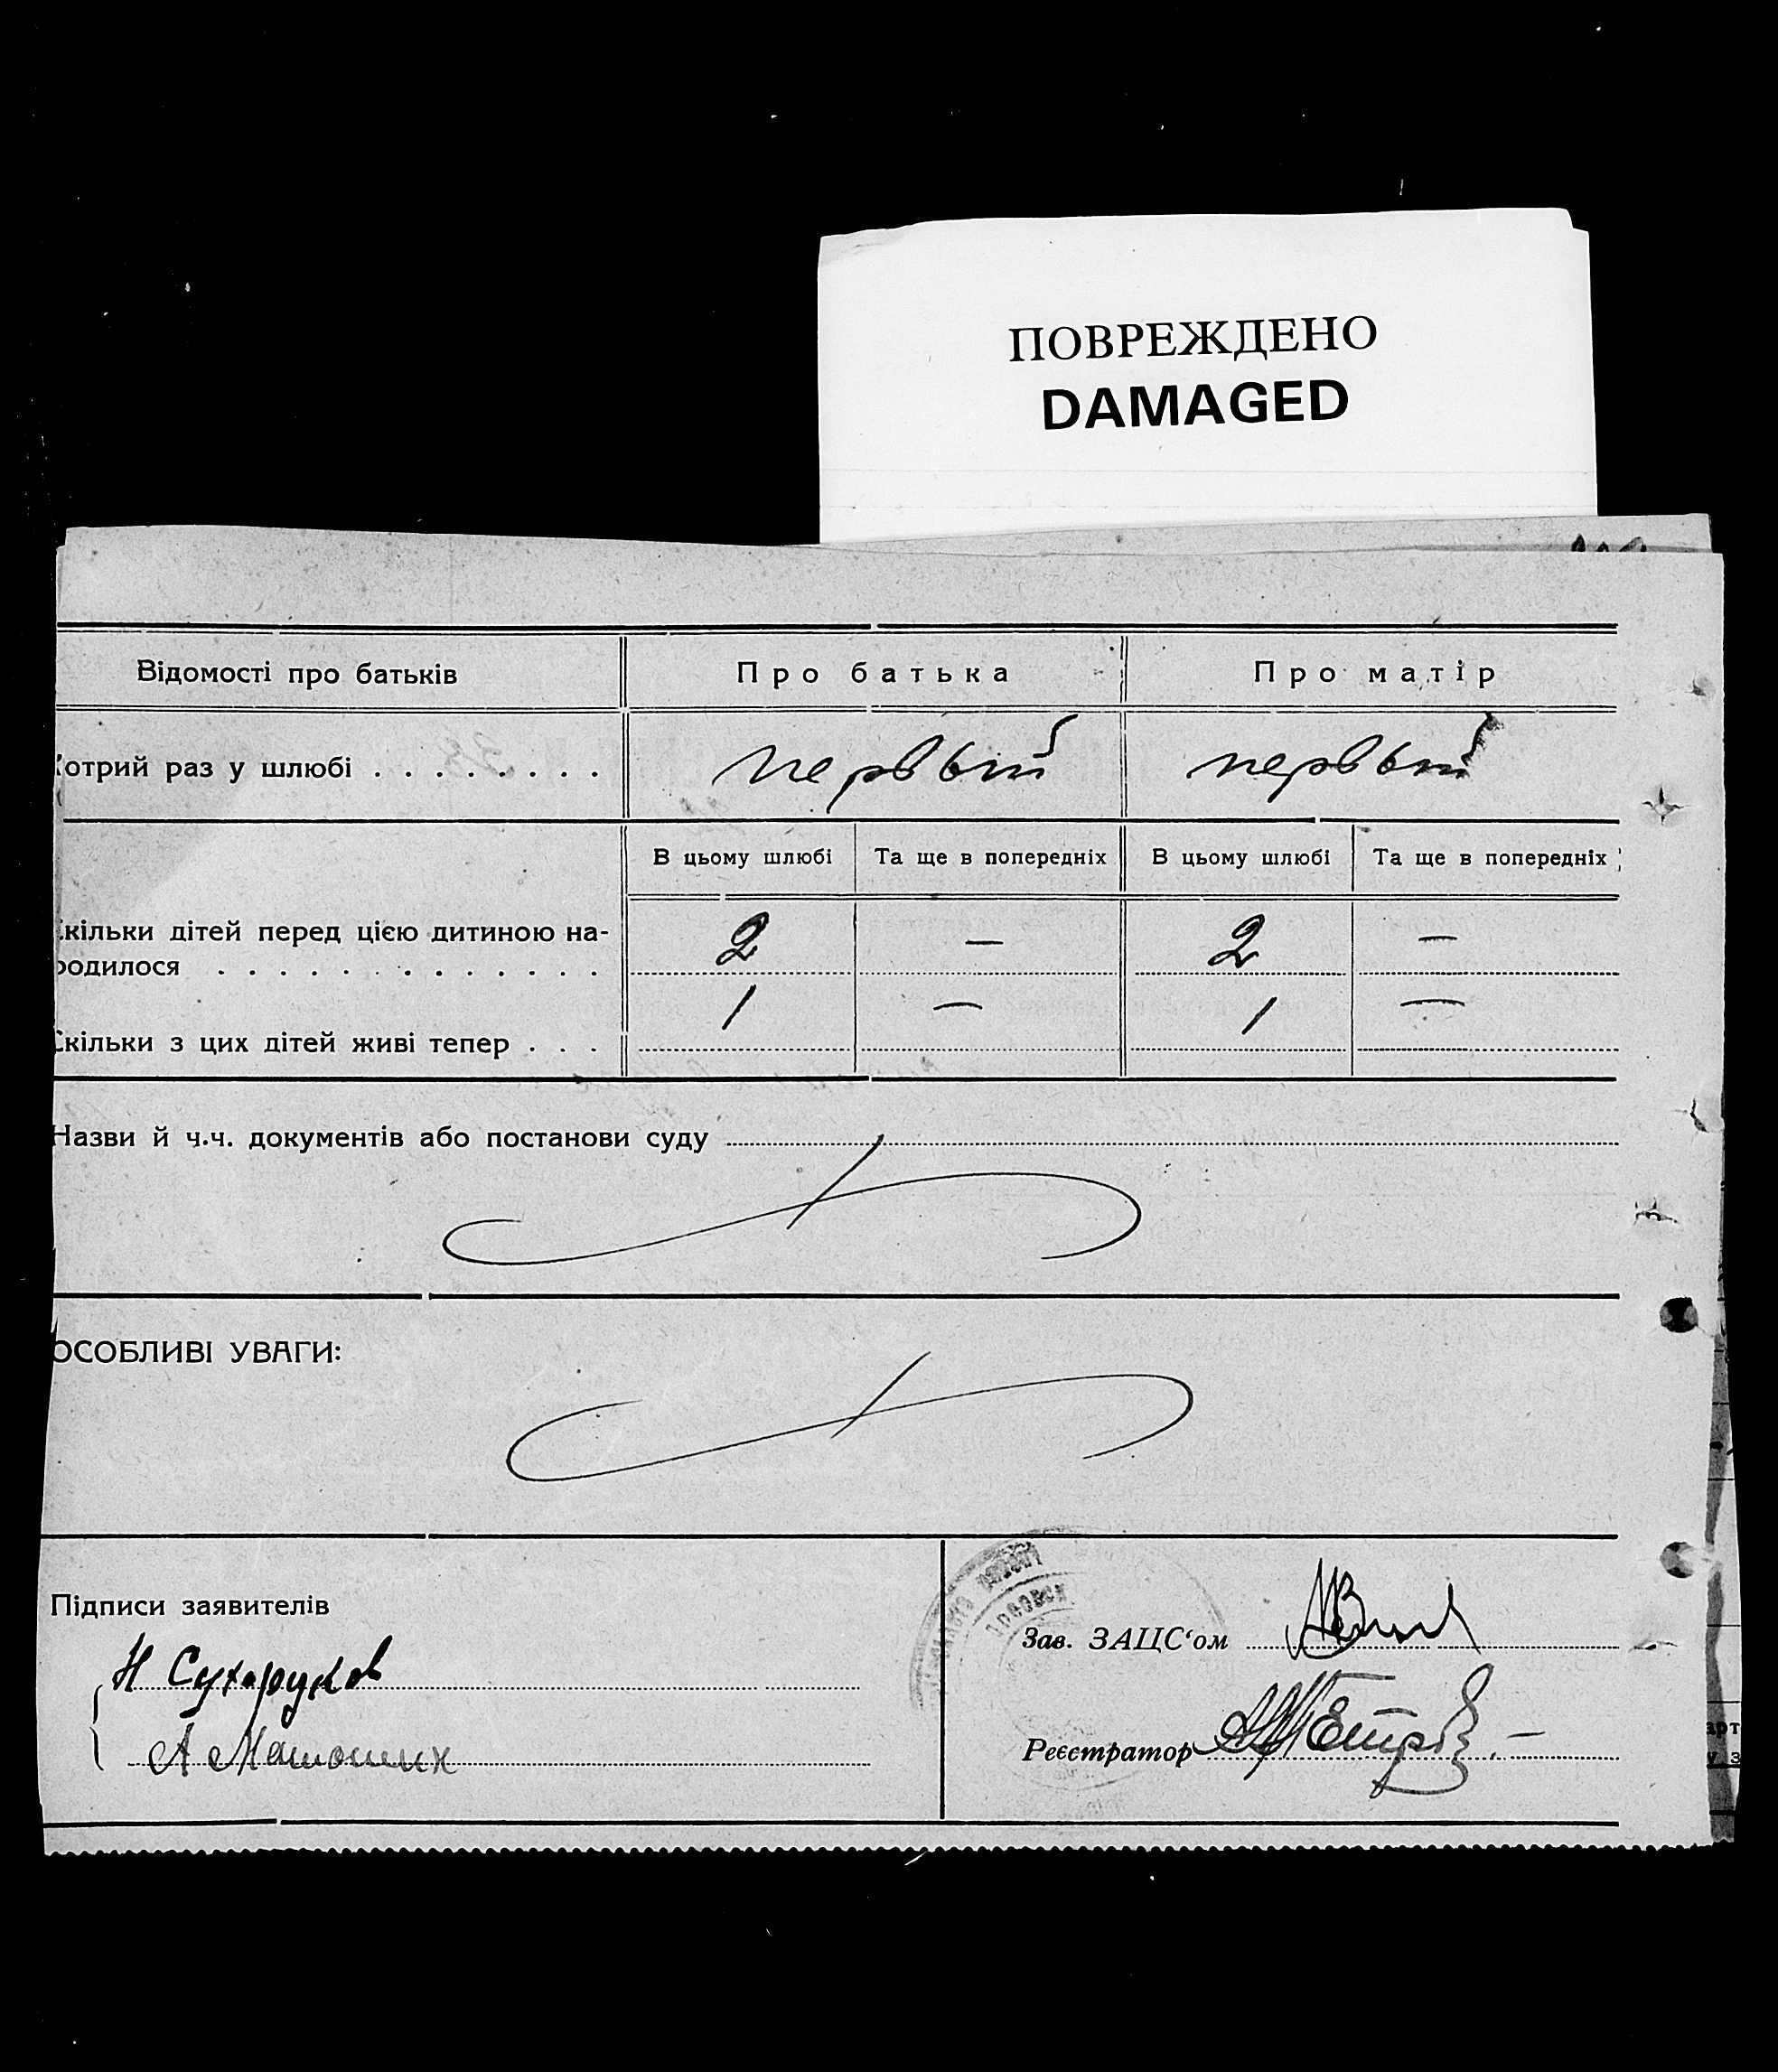 ПОВРЕЖДЕНО
DAMAGED
Відомості про батьків Про батька Про матір
отрий раз у шлюбі . . . . . . . . первый первый
В цьому шлюбі Та ще в попередніх В цьому шлюбі Та ще в попередніх
кільки дітей перед цією дитиною на-
родилося . . . . . . . . . . . . . 2 — 2 —
Скільки з цих дітей живі тепер . . . 1 — 1 —
Назви й ч.ч. документів або постанови суду
ОСОБЛИВІ УВАГИ:
Підписи заявителів
Зав. ЗАЦС‘ом
Н Сухоруков
Реєстратор